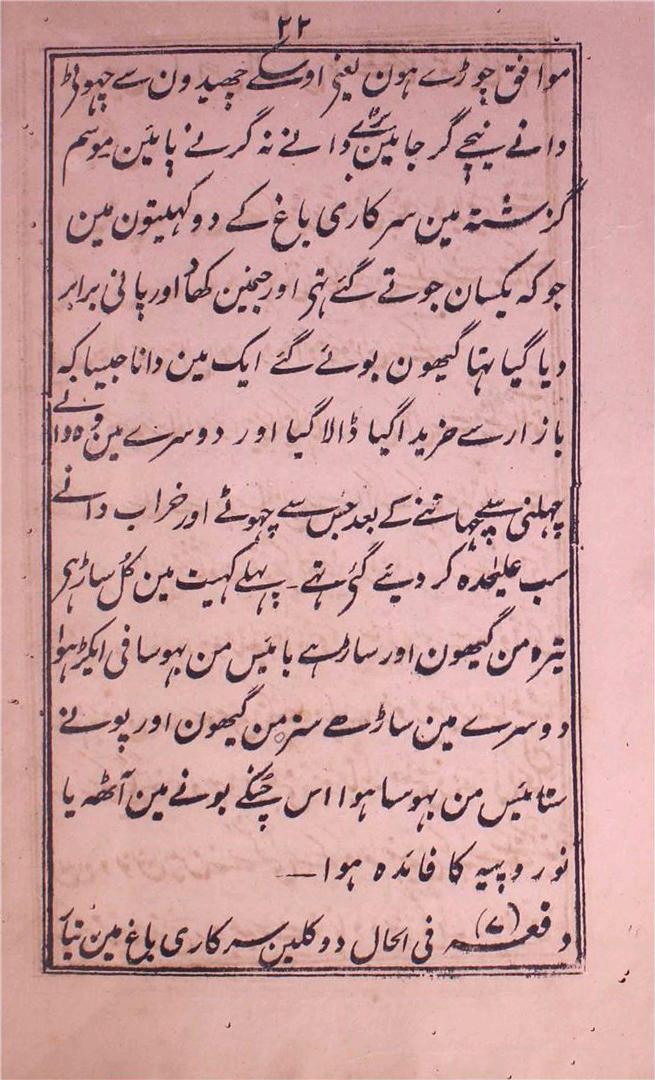 ۲۲
موافق چوڑے ہون یعنی اوسکے چھیدون سے چہوٹے
دانے نیچے گر جائین بڑے دانے نہ گرنے پائین موسم
گزشتہ مین سرکاری باغ کے دو کہیتون مین
جو کہ یکسان جوتے گئے تہی اور جنمین کھاد اور پانی برابر
دیا گیا تہا گیھون بوئے گئے ایک مین دانا جیسا کہ
بازار سے خریدا گیا ڈالا گیا اور دوسرے مین وہ دانے
چہلنی سے چہاننے کے بعد جس سے چہوٹے اور خراب دانے
سب علیحدہ کر دیئے گئی تہے ۔ پہلے کہیت مین کُل ساڑہے
تیرہ من گیھون اور ساڑہے بائیس من بہوسا فی ایکڑ ہوا
دوسرے مین ساڑھے سترہ من گیھون اور پونے
ستائیس من بہوسا ہوا اس چُنکے بونے مین آٹھہ یا
نو روپیہ کا فائدہ ہوا ــ
دفعہ (۷) فی الحال دو کلین سرکاری باغ مین تیار